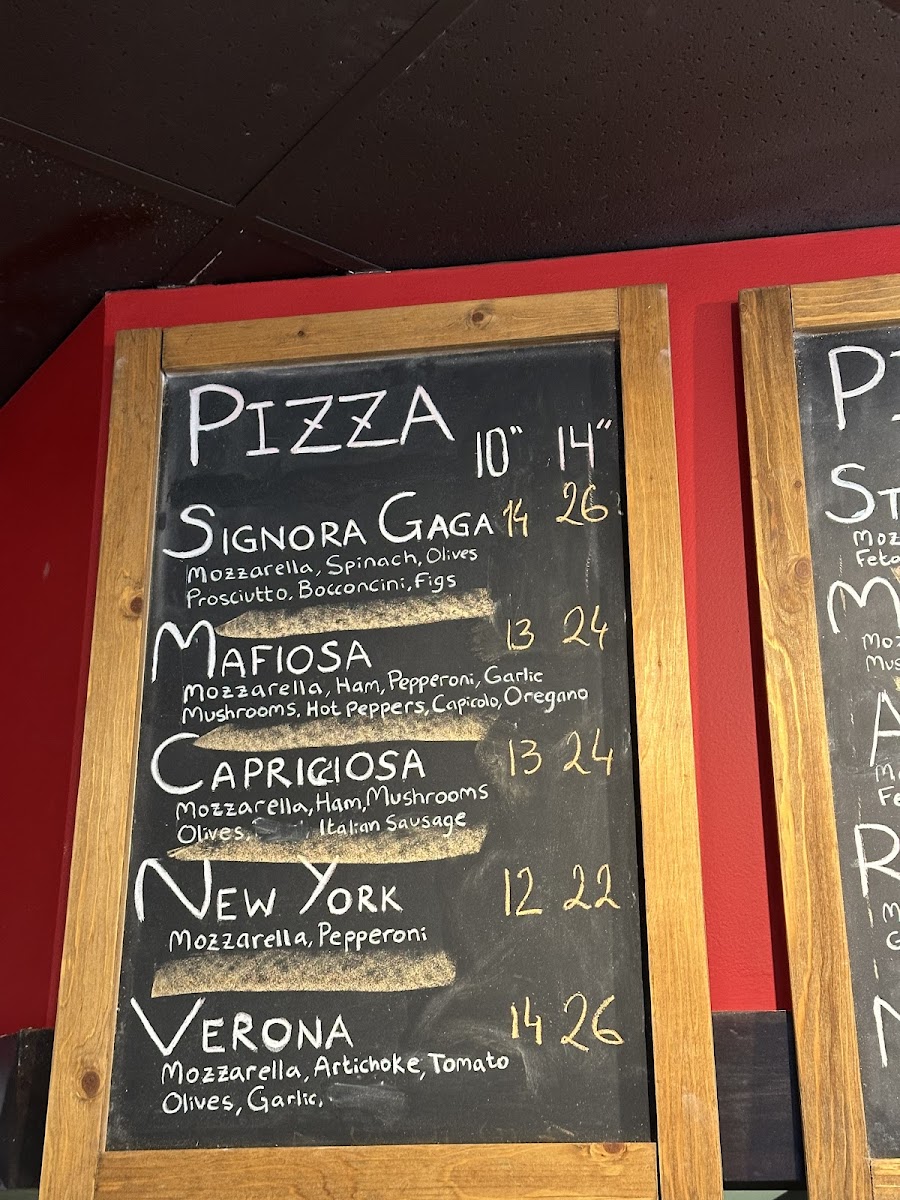 PIZZA
10" 14"
SIGNORA GAGA 14 26
Mozzarella, Spinach, Olives
Prosciutto, Bocconcini, Figs
MAFIOSA 13 24
Mozzarella, Ham, Pepperoni, Garlic
Mushrooms, Hot peppers, Capicolo, Oregano
CAPRICIOSA 13 24
Mozzarella, Ham, Mushrooms
Olives, Italian Sausage
NEW YORK 12 22
Mozzarella, Pepperoni
VERONA 14 26
Mozzarella, Artichoke, Tomato
Olives, Garlic,